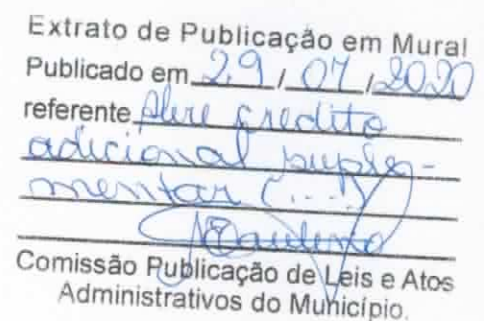 Extrato de Publicação em Mural
Publicado em 29 / 07 / 2020
referente Abre crédito
adicional suple-
mentar (...)
Comissão Publicação de Leis e Atos
Administrativos do Município.